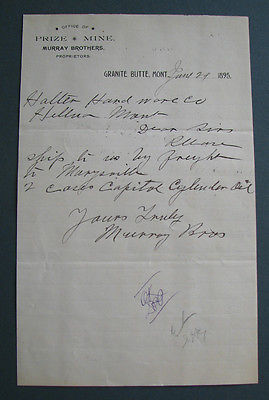 OFFICE OF
PRIZE * MINE.
MURRAY BROTHERS,
PROPRIETORS.
GRANITE BUTTE, MONT. June 29 1895.
Halter Hardware Co
Hellna Mont
Dear Sirs
Please
ship to us by freight
to Marysville
2 Cases Capitol Cylender Oil
Yours Truly
Murray Bros